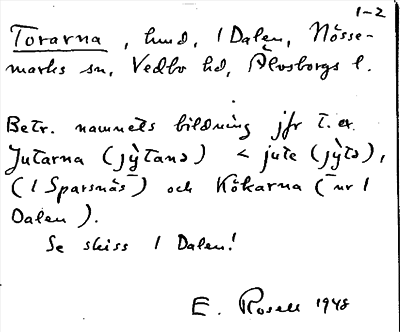 1-2
Torarna, hmd, 1 Dalen, Nösse-
marks sn, Vedbo hd, Älvsborgs l.
Betr. namnets bildning jfr t.ex.
Jutarna (jỳtana) < jute (jỳta),
(1 Sparsnäs) och Kökarna (nr 1
Dalen).
Se skiss 1 Dalen!
E. Rosell 1948